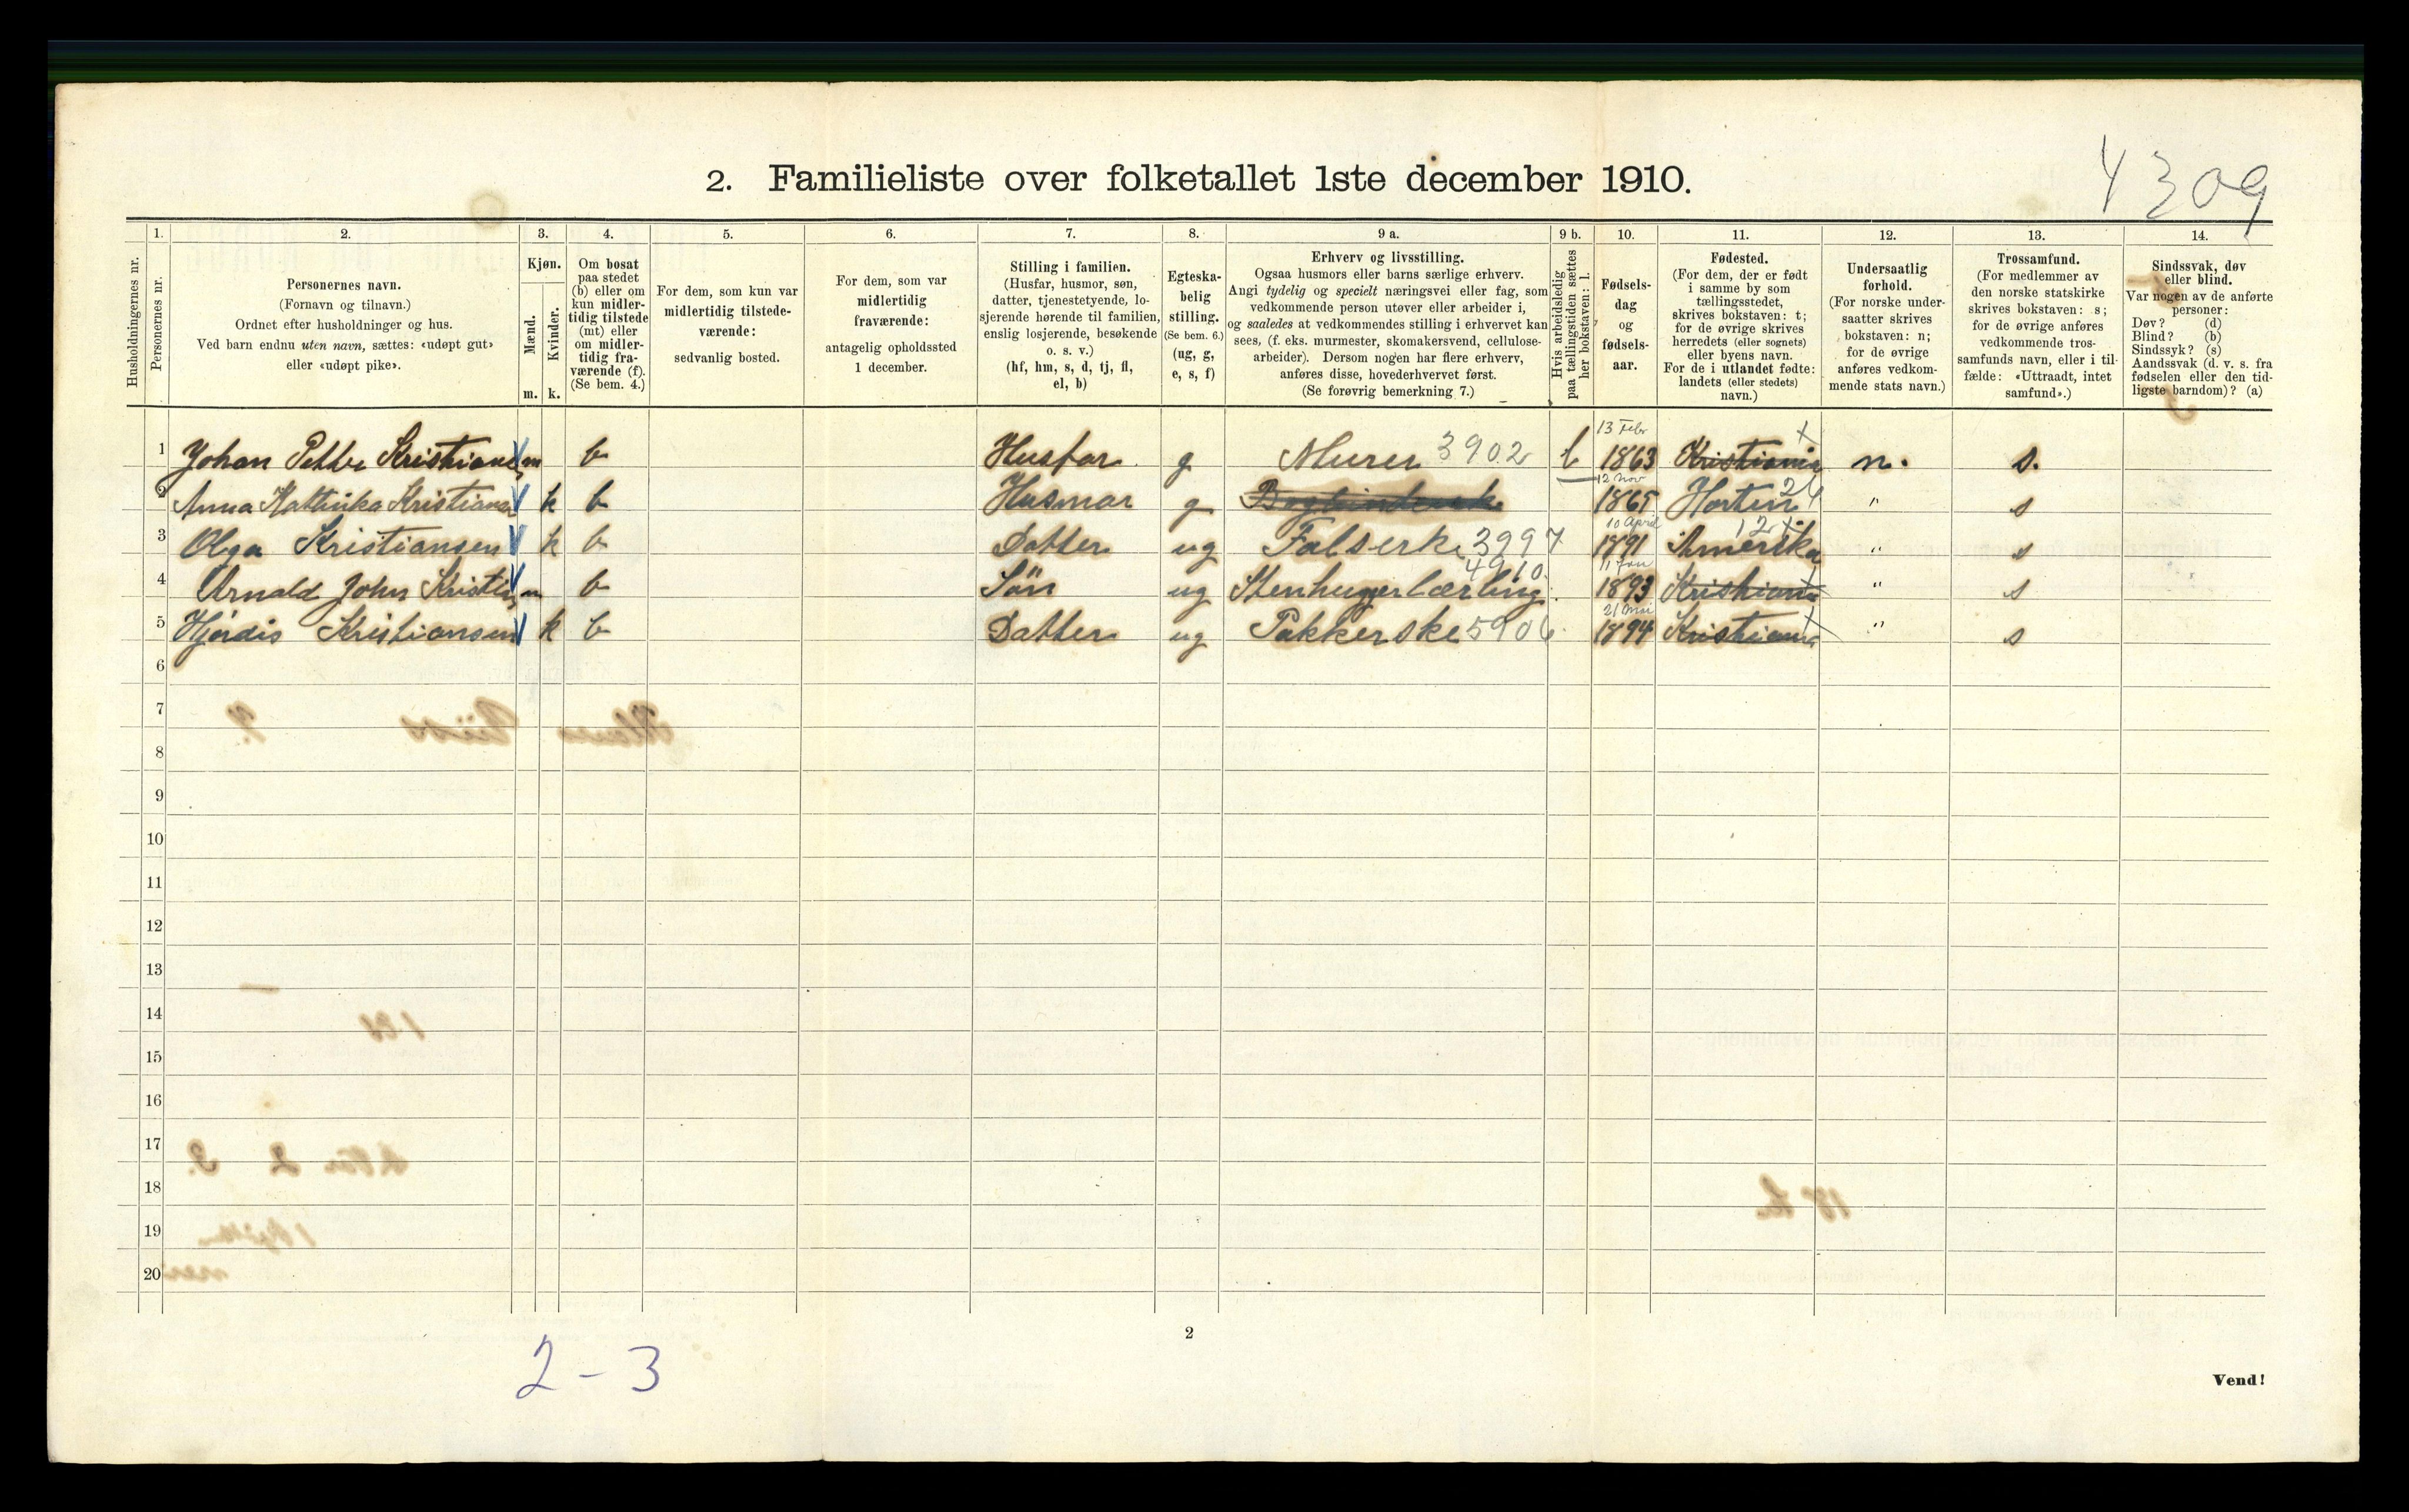 4309
2. Familieliste over folketallet 1ste december 1910.
Husholdningernes nr.
1.
Personernes nr.
2.
Personernes navn.
(Fornavn og tilnavn.)
Ordnet efter husholdninger og hus.
Ved barn endnu uten navn, sættes: «udøpt gut»
eller «udøpt pike».
3.
Kjøn.
Mænd.
Kvinder.
m. k.
4.
Om bosat
paa stedet
(b) eller om
kun midler-
tidig tilstede
(mt) eller
om midler-
tidig fra-
værende (f).
(Se bem. 4.)
5.
For dem, som kun var
midlertidig tilstede-
værende:
sedvanlig bosted.
6.
For dem, som var
midlertidig
fraværende:
antagelig opholdssted
1 december.
7.
Stilling i familien.
(Husfar, husmor, søn,
datter, tjenestetyende, lo-
sjerende hørende til familien,
enslig losjerende, besøkende
o. s. v.)
(hf, hm, s, d, tj, fl,
el, b)
8.
Egteska-
belig
stilling.
(Se bem. 6.)
(ug, g,
e, s, f)
9 a.
Erhverv og livsstilling.
Ogsaa husmors eller barns særlige erhverv.
Angi tydelig og specielt næringsvei eller fag, som
vedkommende person utøver eller arbeider i,
og saaledes at vedkommendes stilling i erhvervet kan
sees, (f. eks. murmester, skomakersvend, cellulose-
arbeider). Dersom nogen har flere erhverv,
anføres disse, hovederhvervet først.
(Se forøvrig bemerkning 7.)
9 b.
Hvis arbeidsledig
paa tællingstiden sættes
her bokstaven: l.
10.
Fødsels-
dag
og
fødsels-
aar.
11.
Fødested.
(For dem, der er født
i samme by som
tællingsstedet,
skrives bokstaven: t;
for de øvrige skrives
herredets (eller sognets)
eller byens navn.
For de i utlandet fødte:
landets (eller stedets)
navn.)
12.
Undersaatlig
forhold.
(For norske under-
saatter skrives
bokstaven: n;
for de øvrige
anføres vedkom-
mende stats navn.)
13.
Trossamfund.
(For medlemmer av
den norske statskirke
skrives bokstaven: s;
for de øvrige anføres
vedkommende tros-
samfunds navn, eller i til-
fælde: «Uttraadt, intet
samfund».)
14.
Sindssvak, døv
eller blind.
Var nogen av de anførte
personer:
Døv? (d)
Blind? (b)
Sindssyk? (s)
Aandssvak (d. v. s. fra
fødselen eller den tid-
ligste barndom)? (a)
1 Johan Petter Kristiansen m b Husfar g Murer 3902 l 13 Febr 1863 Kristiania n. s.
2 Anna Kathinka Kristiansen k b Husmor g 12 Nov 1865 Horten 24 " s
3 Olga Kristiansen k b Datter ug Falserke 3997 10 April 1891 Amerika 12 " s
4 Arnold John Kristia m b Sön ug Stenhuggerlærling 4910 11 Jan 1893 Kristiania " s
5 Hjördis Kristiansen k b Datter ug Pakkerske 5906 21 Mai 1894 Kristiania " s
6
7
8
9
10
11
12
13
14
15
16
17
18
19
20
2
2 - 3
Vend!